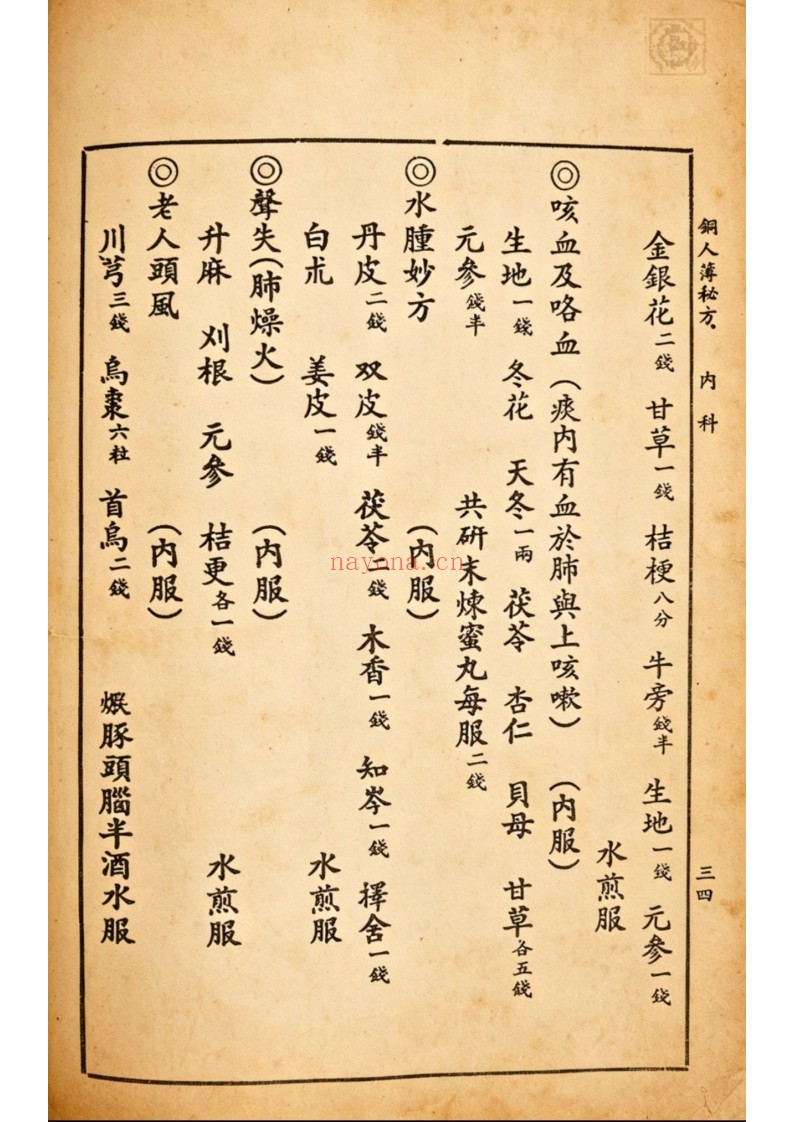 銅人薄秘方、 內科 三四
金銀花二錢 甘草一錢 桔梗八分 牛旁錢半 生地一錢 元參一錢
水煎服
◎咳血及咯血(痰內有血於肺與上咳嗽) (內服)
生地一錢 冬花 天冬一兩 茯苓 杏仁 貝母 甘草各五錢
元參錢半 共研末煉蜜丸每服二錢
◎水腫妙方 (內服)
丹皮二錢 双皮錢半 茯苓錢 木香一錢 知岑一錢 擇舍一錢
白朮 姜皮一錢 水煎服
◎聲失(肺燥火) (內服)
升麻 刈根 元參 桔更各一錢 水煎服
◎老人頭風 (內服)
川芎三錢 烏棗六粒 首烏二錢 豚頭腦半酒水服
nayona.cn